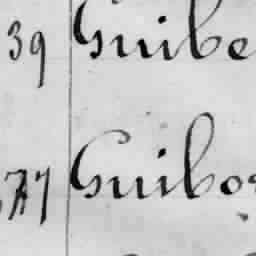 39 Guibe
77 Guibo